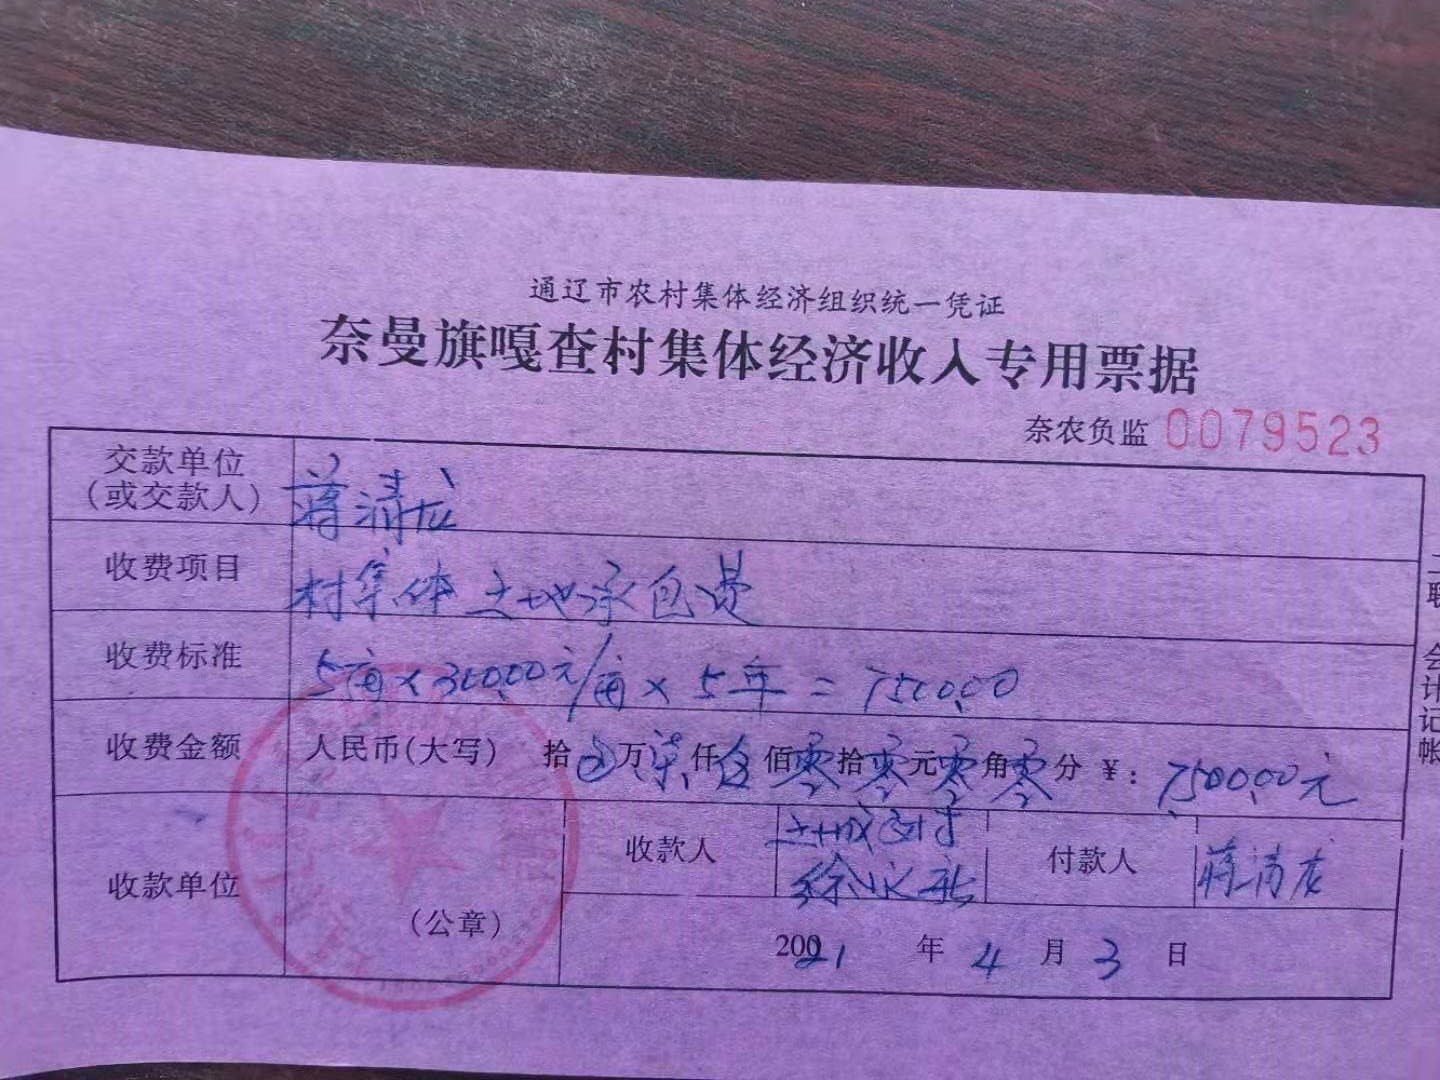 通辽市农村集体经济组织统一凭证
奈曼旗嘎查村集体经济收入专用票据
奈农负监 0079523
交款单位
（或交款人） 蒋清龙
收费项目 村集体土地承包费
收费标准 5亩×300.00元/亩×5年=7500.00
收费金额 人民币(大写) 拾 万柒仟伍佰零拾零元零角零分 ¥：7500.00元
收款单位 （公章） 收款人 徐 付款人 蒋清龙
2021 年 4 月 3 日
联 会计记帐